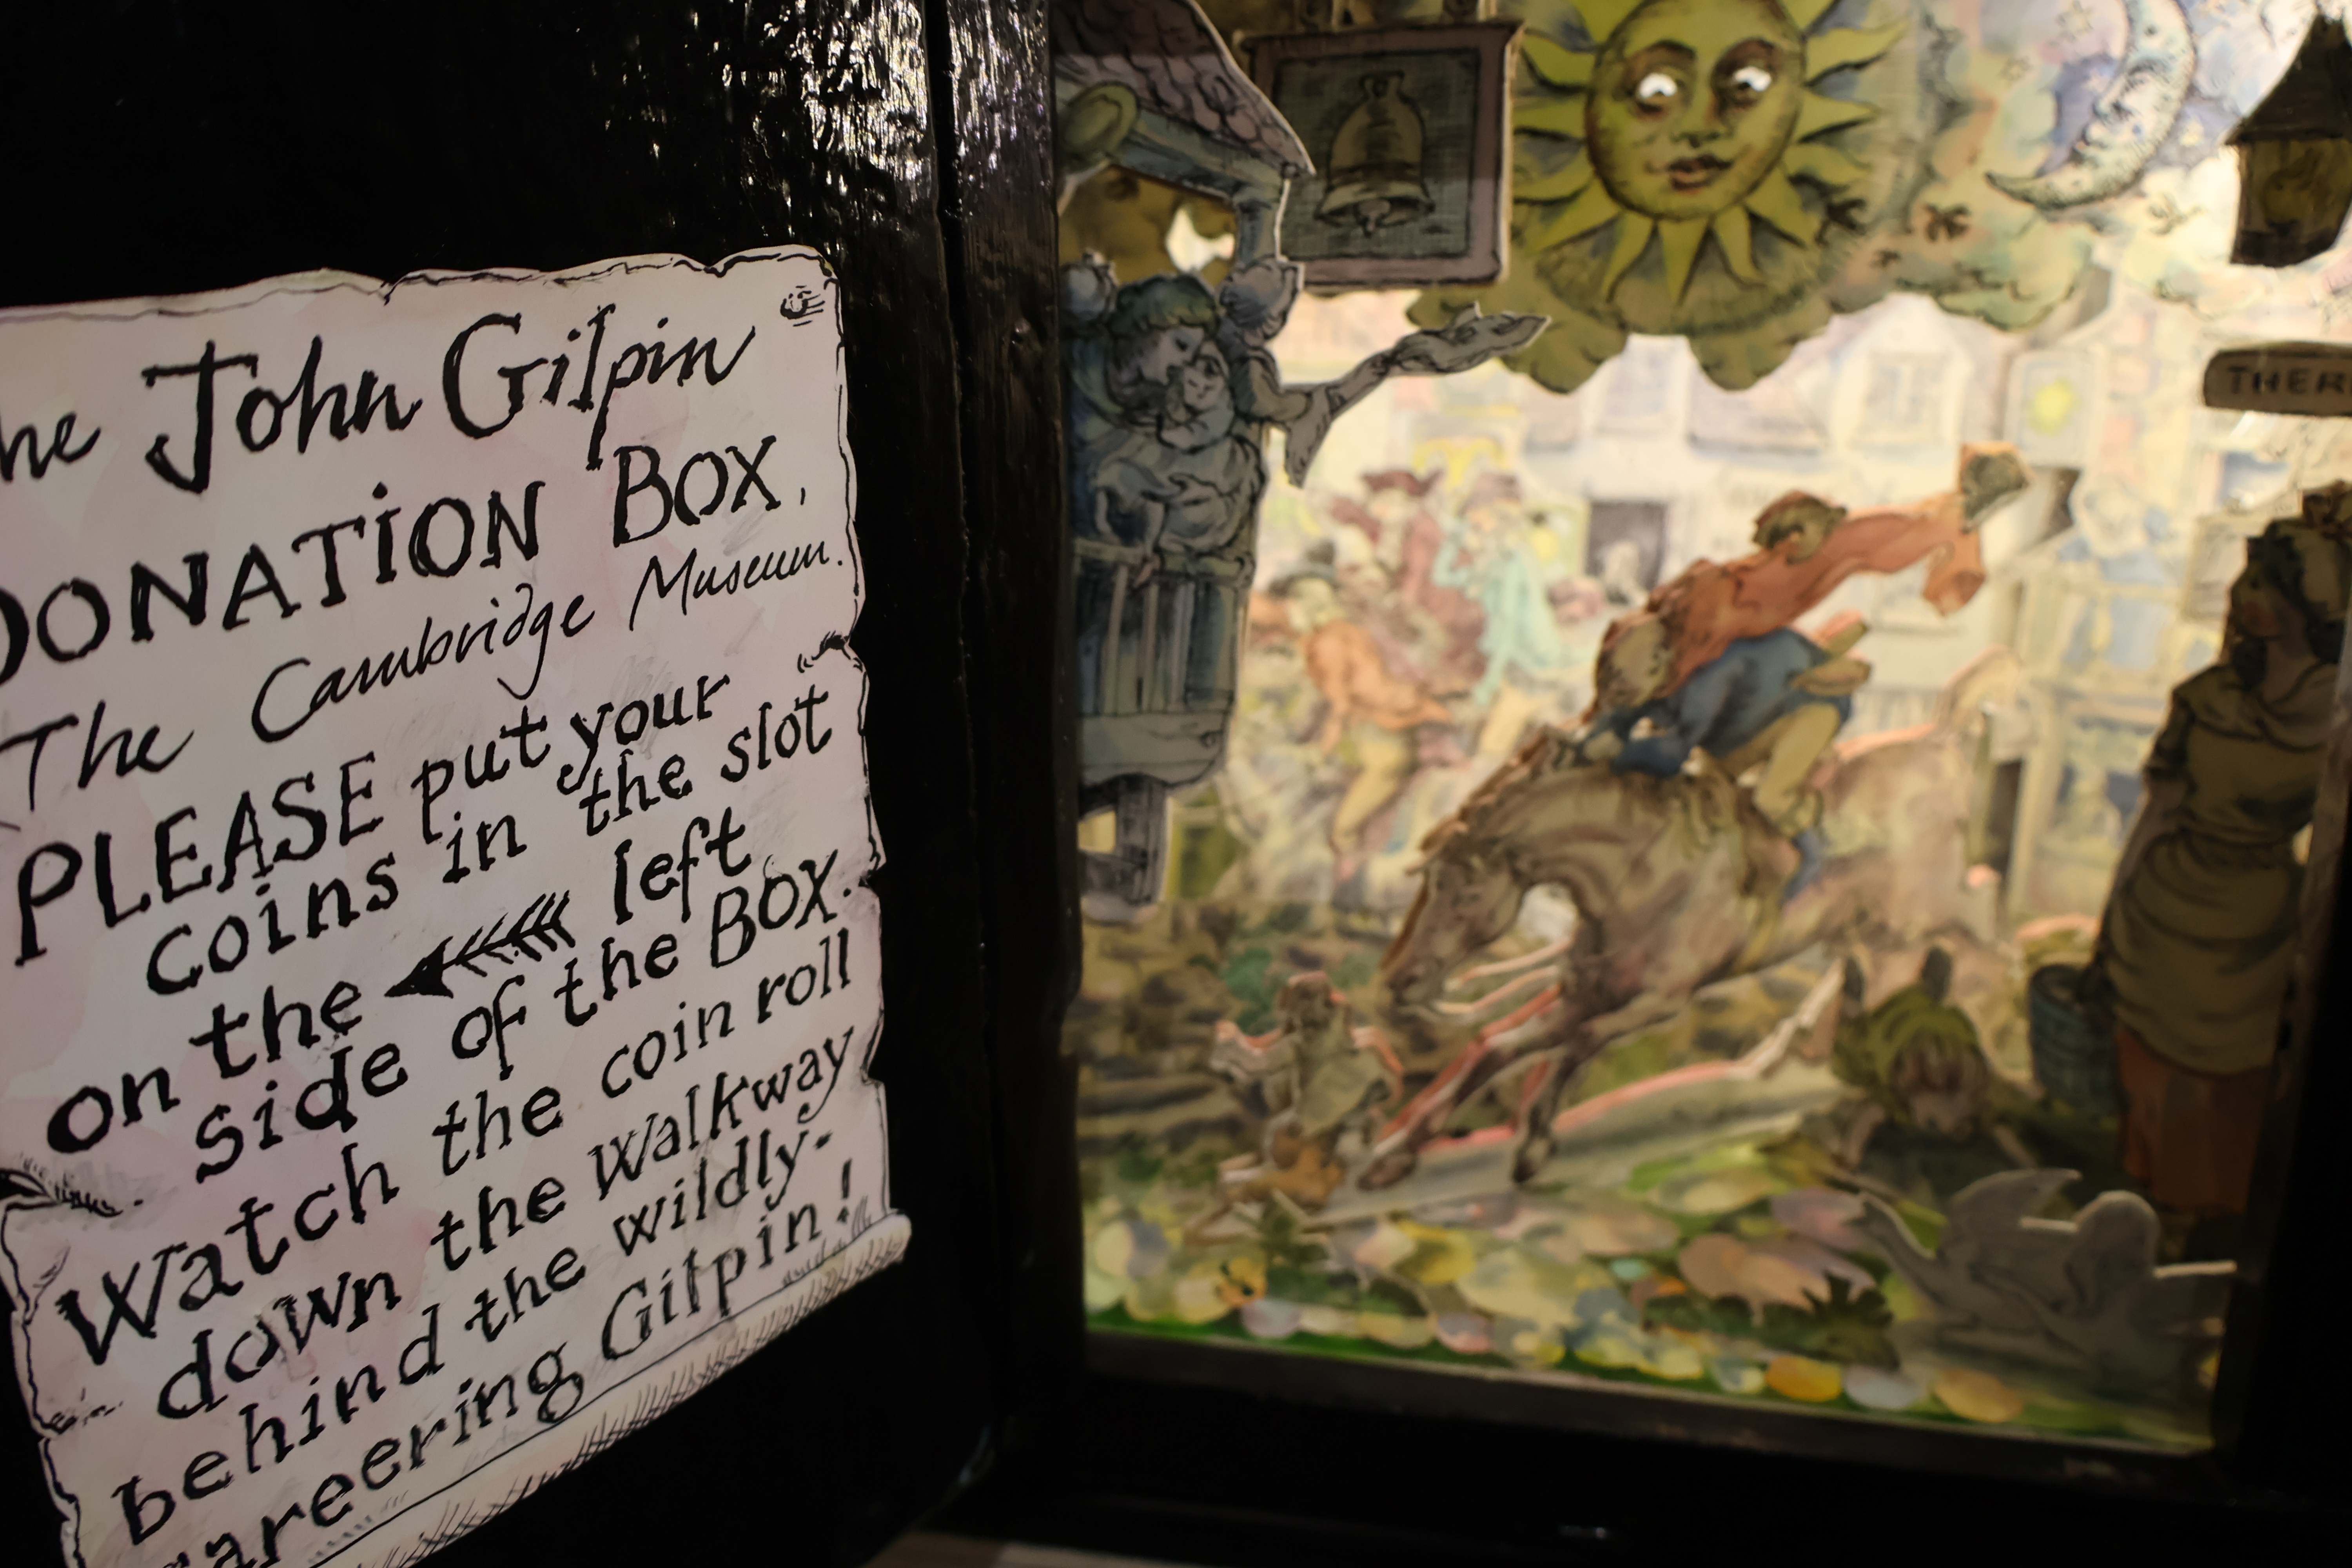 he John Gilpin
DONATION BOX,
The Cambridge Museum.
PLEASE put your
coins in the slot
on the left
side of the BOX.
Watch the coin roll
down the Walkway
behind the wildly-
careering Gilpin!
THER